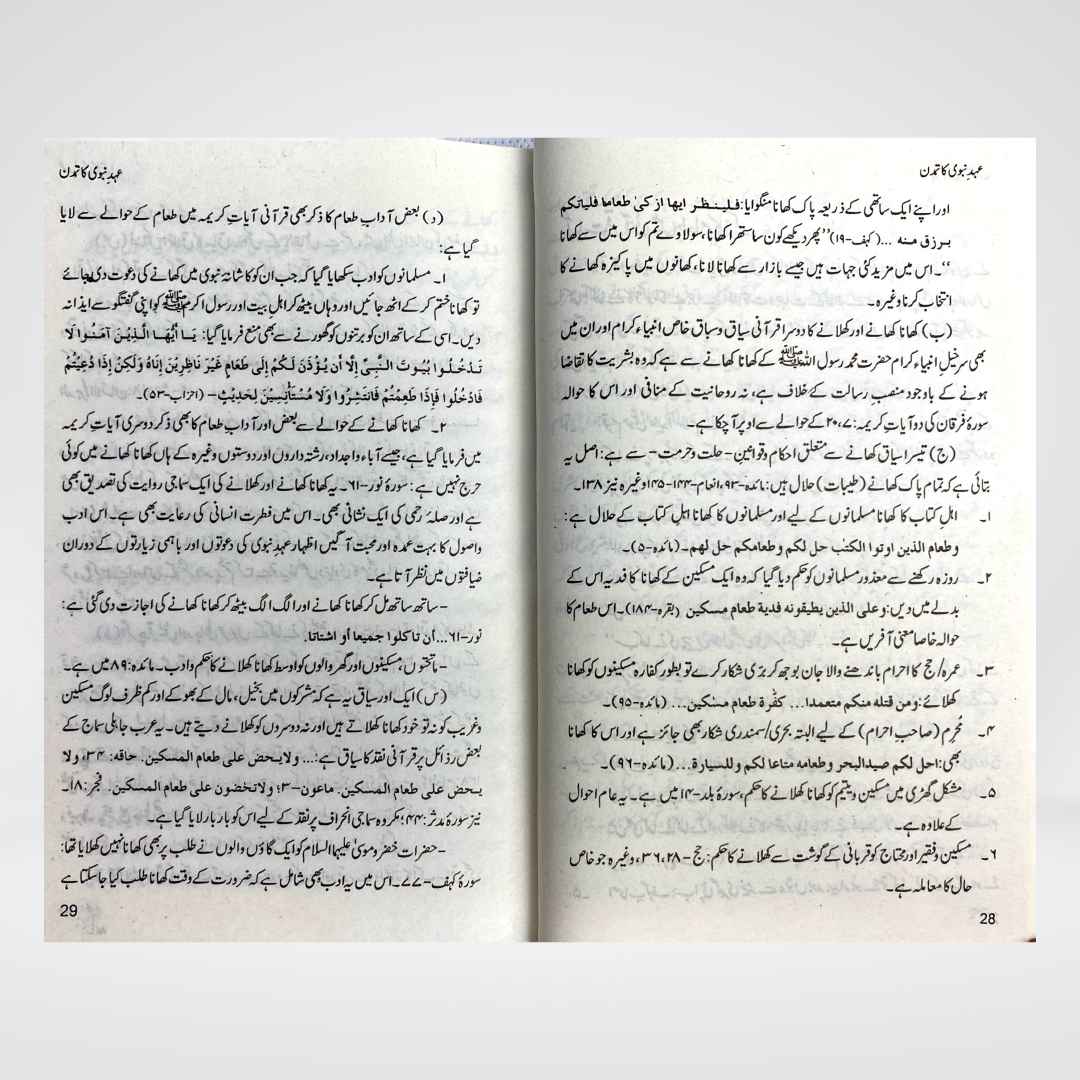 عہدِ نبوی کا تمدن
اور اپنے ایک ساتھی کے ذریعہ پاک کھانا منگوایا: فلینظر ایها ازکی طعاما فلیاتکم
برزق منه ...(کہف-۱۹)’’پھر دیکھے کون سا ستھرا کھانا، سولاوے تم کو اس میں سے کھانا
‘‘۔ اس میں مزید کئی جہات ہیں جیسے بازار سے کھانا لانا، کھانوں میں پاکیزہ کھانے کا
انتخاب کرنا وغیرہ۔
(ب) کھانا کھانے اور کھلانے کا دوسرا قرآنی سیاق وسباق خاص انبیاء کرام اور ان میں
بھی سرخیلِ انبیاء کرام حضرت محمد رسول اللہ ﷺ کے کھانا کھانے سے ہے کہ وہ بشریت کا تقاضا
ہونے کے باوجود منصبِ رسالت کے خلاف ہے، نہ روحانیت کے منافی اور اس کا حوالہ
سورۂ فرقان کی دو آیاتِ کریمہ: ۲۰،۷ کے حوالے سے اوپر آچکا ہے۔
(ج) تیسرا سیاق کھانے سے متعلق احکام وقوانین- حلت وحرمت- سے ہے: اصل یہ
بتائی ہے کہ تمام پاک کھانے (طیبات) حلال ہیں: مائدہ-۹۳، انعام-۱۴۴-۱۴۵ وغیرہ نیز ۱۳۸۔
۱۔ اہلِ کتاب کا کھانا مسلمانوں کے لیے اور مسلمانوں کا کھانا اہلِ کتاب کے حلال ہے:
وطعام الذین اوتوا الکتٰب حل لکم وطعامکم حل لهم۔(مائدہ-۵)۔
۲۔ روزہ رکھنے سے معذور مسلمانوں کو حکم دیا گیا کہ وہ ایک مسکین کے کھانا کا فدیہ اس کے
بدلے میں دیں: وعلی الذین یطیقونه فدیة طعام مسکین (بقرہ-۱۸۴)۔ اس طعام کا
حوالہ خاصا معنی آفریں ہے۔
۳۔ عمرہ/حج کا احرام باندھنے والا جان بوجھ کر بَرّی شکار کرے تو بطور کفارہ مسکینوں کو کھانا
کھلائے: ومن قتله منکم متعمدا... کفّرة طعام مسکین... (مائدہ-۹۵)۔
۴۔ مُحرِم (صاحبِ احرام) کے لیے البتہ بحری/سمندری شکار بھی جائز ہے اور اس کا کھانا
بھی: احل لکم صیدالبحر وطعامه متاعا لکم وللسیارة...(مائدہ-۹۶)۔
۵۔ مشکل گھڑی میں مسکین ویتیم کو کھانا کھلانے کا حکم، سورۂ بلد-۱۴ میں ہے۔ یہ عام احوال
کے علاوہ ہے۔
۶۔ مسکین وفقیر اور محتاج کو قربانی کے گوشت سے کھلانے کا حکم: حج-۳۶،۲۸، وغیرہ جو خاص
حال کا معاملہ ہے۔
28
عہدِ نبوی کا تمدن
(د) بعض آدابِ طعام کا ذکر بھی قرآنی آیاتِ کریمہ میں طعام کے حوالے سے لایا
گیا ہے:
۱۔ مسلمانوں کو ادب سکھایا گیا کہ جب ان کو کاشانۂ نبوی میں کھانے کی دعوت دی جائے
تو کھانا ختم کر کے اٹھ جائیں اور وہاں بیٹھ کر اہل بیت اور رسول اکرم ﷺ کو اپنی گفتگو سے ایذا نہ
دیں۔ اسی کے ساتھ ان کو برتنوں کو گھورنے سے بھی منع فرمایا گیا: يَا أَيُّهَا الَّذِيْنَ آمَنُوا لَا
تَدْخُلُوا بُيُوتَ النَّبِيِّ إِلَّا أَن يُؤْذَنَ لَكُمْ إِلَى طَعَامٍ غَيْرَ نَاظِرِيْنَ إِنَاهُ وَلَكِنْ إِذَا دُعِيْتُمْ
فَادْخُلُوا فَإِذَا طَعِمْتُمْ فَانتَشِرُوا وَلَا مُسْتَأْنِسِيْنَ لِحَدِيْثٍ-(احزاب-۵۳)۔
۲۔ کھانا کھانے کے حوالے سے بعض اور آدابِ طعام کا بھی ذکر دوسری آیاتِ کریمہ
میں فرمایا گیا ہے، جیسے آباء واجداد، رشتہ داروں اور دوستوں وغیرہ کے ہاں کھانا کھانے میں کوئی
حرج نہیں ہے: سورۂ نور-۶۱۔ یہ کھانا کھانے اور کھلانے کی ایک سماجی روایت کی تصدیق بھی
ہے اور صلۂ رحمی کی ایک نشانی بھی۔ اس میں فطرت انسانی کی رعایت بھی ہے۔ اس ادب
واصول کا بہت عمدہ اور محبت آگیں اظہار عہدِ نبوی کی دعوتوں اور باہمی زیارتوں کے دوران
ضیافتوں میں نظر آتا ہے۔
-ساتھ ساتھ مل کر کھانا کھانے اور الگ الگ بیٹھ کر کھانا کھانے کی اجازت دی گئی ہے:
نور-۶۱... أن تاکلوا جمیعا أو اشتاتا.
-ماتحتوں، مسکینوں اور گھر والوں کو اوسط کھانا کھلانے کا حکم وادب۔ مائدہ: ۸۹ میں ہے۔
(س) ایک اور سیاق یہ ہے کہ مشرکوں میں بخیل، مال کے بھوکے اور کم ظرف لوگ مسکین
وغریب کو نہ تو خود کھانا کھلاتے ہیں اور نہ دوسروں کو کھلانے دیتے ہیں۔ یہ عرب جاہلی سماج کے
بعض رذائل پر قرآنی نقد کا سیاق ہے:... ولایحض علی طعام المسکین. حاقہ: ۳۴، ولا
یحض علی طعام المسکین. ماعون-۳؛ ولاتخضون علی طعام المسکین. فجر: ۱۸۔
نیز سورۂ مدثر: ۴۴؛ مکروہ سماجی انحراف پر نقد کے لیے اس کو بار بار لایا گیا ہے۔
-حضرات خضر وموسیٰ علیہما السلام کو ایک گاؤں والوں نے طلب پر بھی کھانا نہیں کھلایا تھا:
سورۂ کہف-۷۷۔ اس میں یہ ادب بھی شامل ہے کہ ضرورت کے وقت کھانا طلب کیا جا سکتا ہے
29